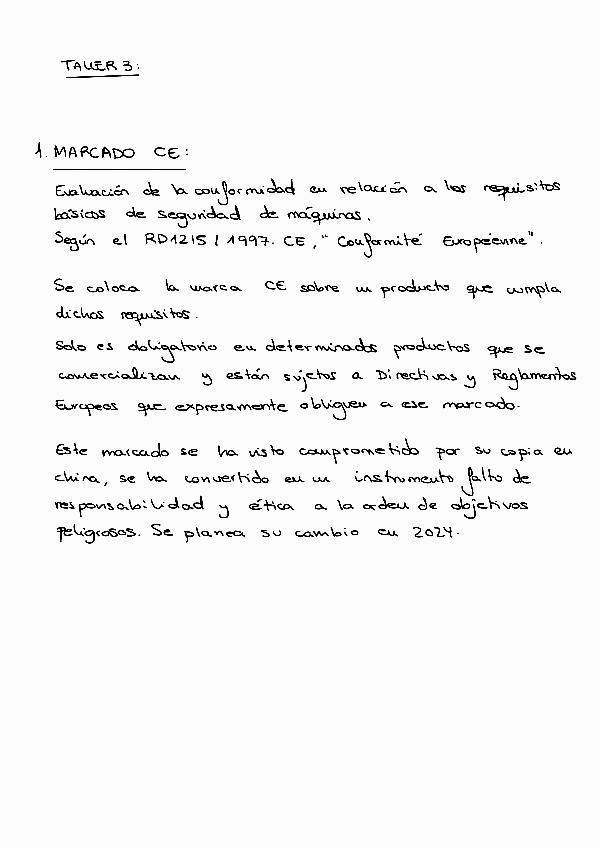 TALLER 3:
1. MARCADO CE:
Evaluación de la conformidad en relación a los requisitos
básicos de seguridad de máquinas.
Según el RD1215 / 1997. CE, "Conformité Européenne".
Se coloca la marca CE sobre un producto que cumpla
dichos requisitos.
Solo es obligatorio en determinados productos que se
comercializan y están sujetos a Directivas y Reglamentos
Europeos que expresamente obliguen a ese marcado.
Este marcado se ha visto comprometido por su copia en
china, se ha convertido en un instrumento falto de
responsabilidad y ética a la orden de objetivos
peligrosos. Se planea su cambio en 2024.